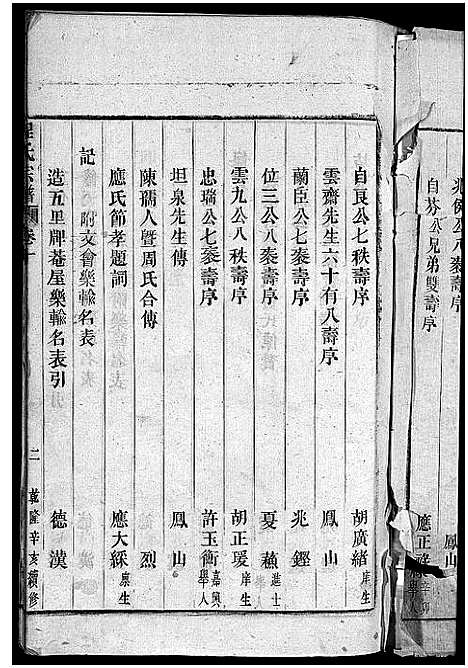 兆保公八袠壽序 鳳山
自芬公兄弟雙壽序 應正
自良公七秩壽序 胡廣緒庠生
雲齋先生六十有八壽序 鳳山
蘭臣公七袠壽序 兆鏗
位三公八袠壽序 夏蘓進士
雲九公八秩壽序 胡正瑗庠生
忠瑞公七袠壽序 許玉衡嘉興舉人
坦泉先生傳 鳳山
陳孺人暨周氏合傳 烈
應氏節孝題詞 應大綵廪生
記 附文會樂輸名表
造五里牌菴屋樂輸名表引 德漢
程氏宗譜 卷一 二 乾隆辛亥續修